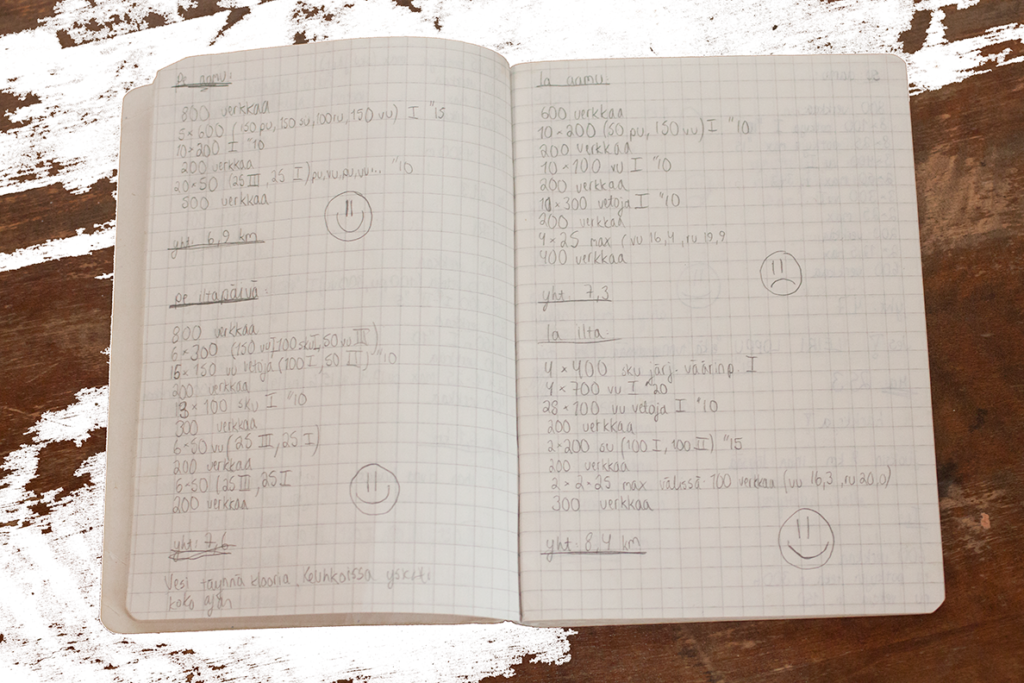 Pe aamu:
800 verkkaa
5×600 (150 pu, 150 su, 100 ru, 150 vu) I "15
10×200 I "10
200 verkkaa
20×50 (25 III, 25 I) pu, vu, pu, vu... "10
500 verkkaa
yht. 6,9 km
pe iltapäivä:
800 verkkaa
6×300 (150 vu I, 100 sku I, 50 vu III)
15×150 vu vetoja (100 I, 50 III) "10
200 verkkaa
13×100 sku I "10
300 verkkaa
6×50 vu (25 III, 25 I)
200 verkkaa
6×50 (25 III, 25 I
200 verkkaa
yht. 7,6
Vesi täynnä klooria. Keuhkoissa yskitti
koko ajan
la aamu
600 verkkaa
10×200 (50 pu, 150 vu) I "10
200 verkkaa
10×100 vu I "10
200 verkkaa
10×300 vetoja I "10
200 verkkaa
4×25 max (vu 16,4, ru 19,9
400 verkkaa
yht. 7,3
la ilta:
4×400 sku järj. väärinp. I
4×700 vu I "20
28×100 vu vetoja I "10
200 verkkaa
2×200 su (100 I, 100 II) "15
200 verkkaa
2×2×25 max välissä 100 verkkaa (vu 16,3, ru 20,0)
300 verkkaa
yht. 8,4 km